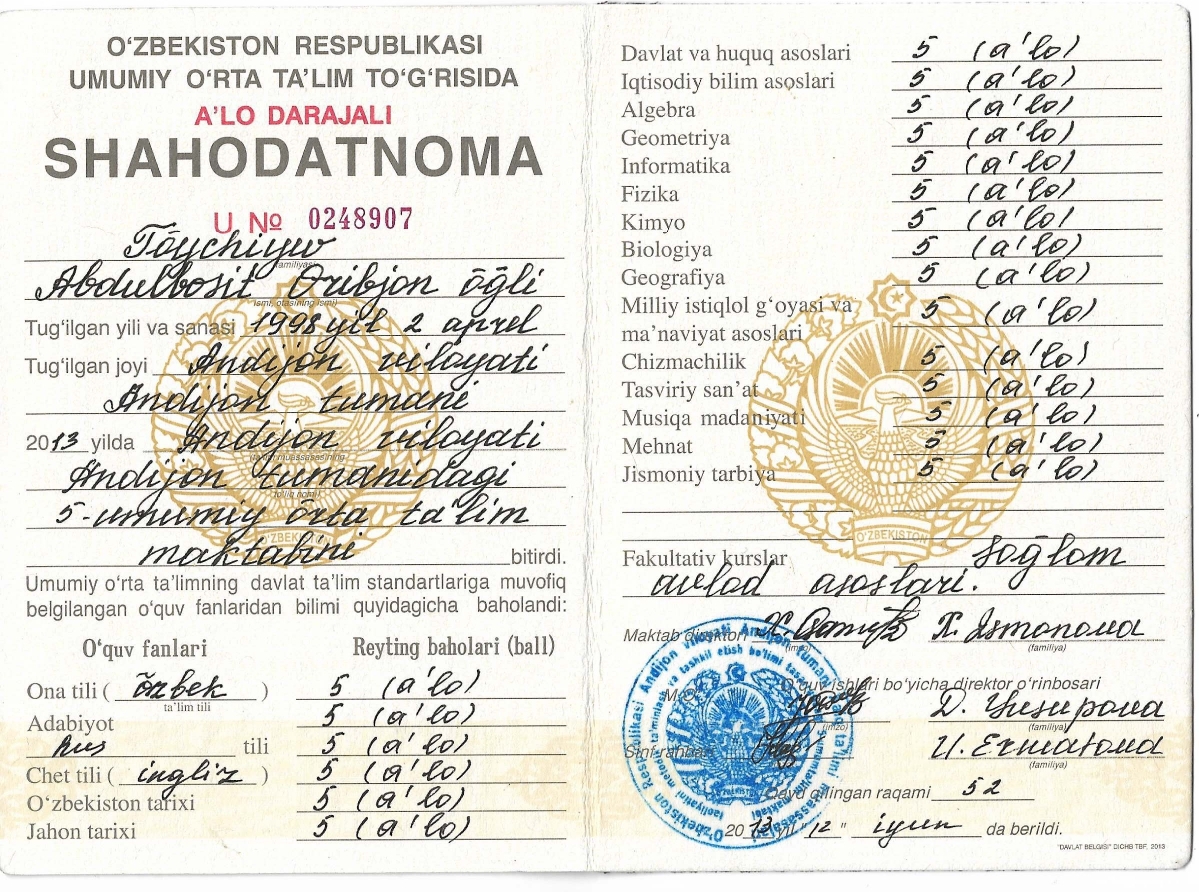 O‘ZBEKISTON RESPUBLIKASI
UMUMIY O‘RTA TA’LIM TO‘G‘RISIDA
A’LO DARAJALI
SHAHODATNOMA
U № 0248907
Tōychiyev
(familiyasi)
Abdulbosit Oribjon ōğli
(ismi, otasining ismi)
Tug‘ilgan yili va sanasi 1998 yil 2 aprel
Tug‘ilgan joyi Andijon viloyati
Andijon tumani
2013 yilda Andijon viloyati
(ta’lim muassasasining
Andijon tumanidagi
to‘liq nomi)
5-umumiy ōrta ta’lim
maktabini bitirdi.
Umumiy o‘rta ta’limning davlat ta’lim standartlariga muvofiq
belgilangan o‘quv fanlaridan bilimi quyidagicha baholandi:
O‘quv fanlari Reyting baholari (ball)
Ona tili ( ōzbek ) 5 (a’lo)
ta’lim tili
Adabiyot 5 (a’lo)
Rus tili 5 (a’lo)
Chet tili ( ingliz ) 5 (a’lo)
O‘zbekiston tarixi 5 (a’lo)
Jahon tarixi 5 (a’lo)
O‘ZBEKISTON
Davlat va huquq asoslari 5 (a’lo)
Iqtisodiy bilim asoslari 5 (a’lo)
Algebra 5 (a’lo)
Geometriya 5 (a’lo)
Informatika 5 (a’lo)
Fizika 5 (a’lo)
Kimyo 5 (a’lo)
Biologiya 5 (a’lo)
Geografiya 5 (a’lo)
Milliy istiqlol g‘oyasi va
ma’naviyat asoslari 5 (a’lo)
Chizmachilik 5 (a’lo)
Tasviriy san’at 5 (a’lo)
Musiqa madaniyati 5 (a’lo)
Mehnat 5 (a’lo)
Jismoniy tarbiya 5 (a’lo)
O‘ZBEKISTON
Fakultativ kurslar Soğlom
avlod asoslari.
Maktab direktori X. Ismonova
(imzo) (familiya)
M.O‘. O‘quv ishlari bo‘yicha direktor o‘rinbosari
D. Yusupova
(imzo) (familiya)
Sinf rahbari U. Ermatova
(familiya)
Qayd qilingan raqami 52
2013 yil "12" iyun da berildi.
"DAVLAT BELGISI" DICHB TBF, 2013